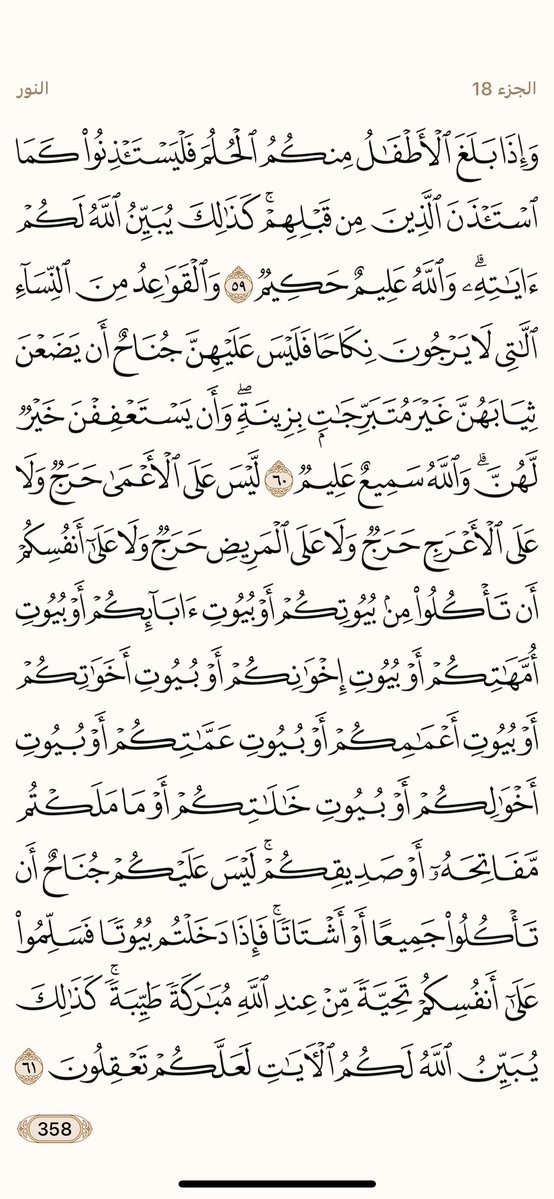 الجزء 18
النور
وَإِذَا بَلَغَ ٱلْأَطْفَٰلُ مِنكُمُ ٱلْحُلُمَ فَلْيَسْتَـْٔذِنُوا۟ كَمَا
ٱسْتَـْٔذَنَ ٱلَّذِينَ مِن قَبْلِهِمْ ۚ كَذَٰلِكَ يُبَيِّنُ ٱللَّهُ لَكُمْ
ءَايَٰتِهِۦ ۗ وَٱللَّهُ عَلِيمٌ حَكِيمٌ ٥٩ وَٱلْقَوَٰعِدُ مِنَ ٱلنِّسَآءِ
ٱلَّٰتِى لَا يَرْجُونَ نِكَاحًا فَلَيْسَ عَلَيْهِنَّ جُنَاحٌ أَن يَضَعْنَ
ثِيَابَهُنَّ غَيْرَ مُتَبَرِّجَٰتٍۭ بِزِينَةٍ ۖ وَأَن يَسْتَعْفِفْنَ خَيْرٌ
لَّهُنَّ ۗ وَٱللَّهُ سَمِيعٌ عَلِيمٌ ٦٠ لَّيْسَ عَلَى ٱلْأَعْمَىٰ حَرَجٌ وَلَا
عَلَى ٱلْأَعْرَجِ حَرَجٌ وَلَا عَلَى ٱلْمَرِيضِ حَرَجٌ وَلَا عَلَىٰٓ أَنفُسِكُمْ
أَن تَأْكُلُوا۟ مِنۢ بُيُوتِكُمْ أَوْ بُيُوتِ ءَابَآئِكُمْ أَوْ بُيُوتِ
أُمَّهَٰتِكُمْ أَوْ بُيُوتِ إِخْوَٰنِكُمْ أَوْ بُيُوتِ أَخَوَٰتِكُمْ
أَوْ بُيُوتِ أَعْمَٰمِكُمْ أَوْ بُيُوتِ عَمَّٰتِكُمْ أَوْ بُيُوتِ
أَخْوَٰلِكُمْ أَوْ بُيُوتِ خَٰلَٰتِكُمْ أَوْ مَا مَلَكْتُم
مَّفَاتِحَهُۥٓ أَوْ صَدِيقِكُمْ ۚ لَيْسَ عَلَيْكُمْ جُنَاحٌ أَن
تَأْكُلُوا۟ جَمِيعًا أَوْ أَشْتَاتًا ۚ فَإِذَا دَخَلْتُم بُيُوتًا فَسَلِّمُوا۟
عَلَىٰٓ أَنفُسِكُمْ تَحِيَّةً مِّنْ عِندِ ٱللَّهِ مُبَٰرَكَةً طَيِّبَةً ۚ كَذَٰلِكَ
يُبَيِّنُ ٱللَّهُ لَكُمُ ٱلْءَايَٰتِ لَعَلَّكُمْ تَعْقِلُونَ ٦١
358